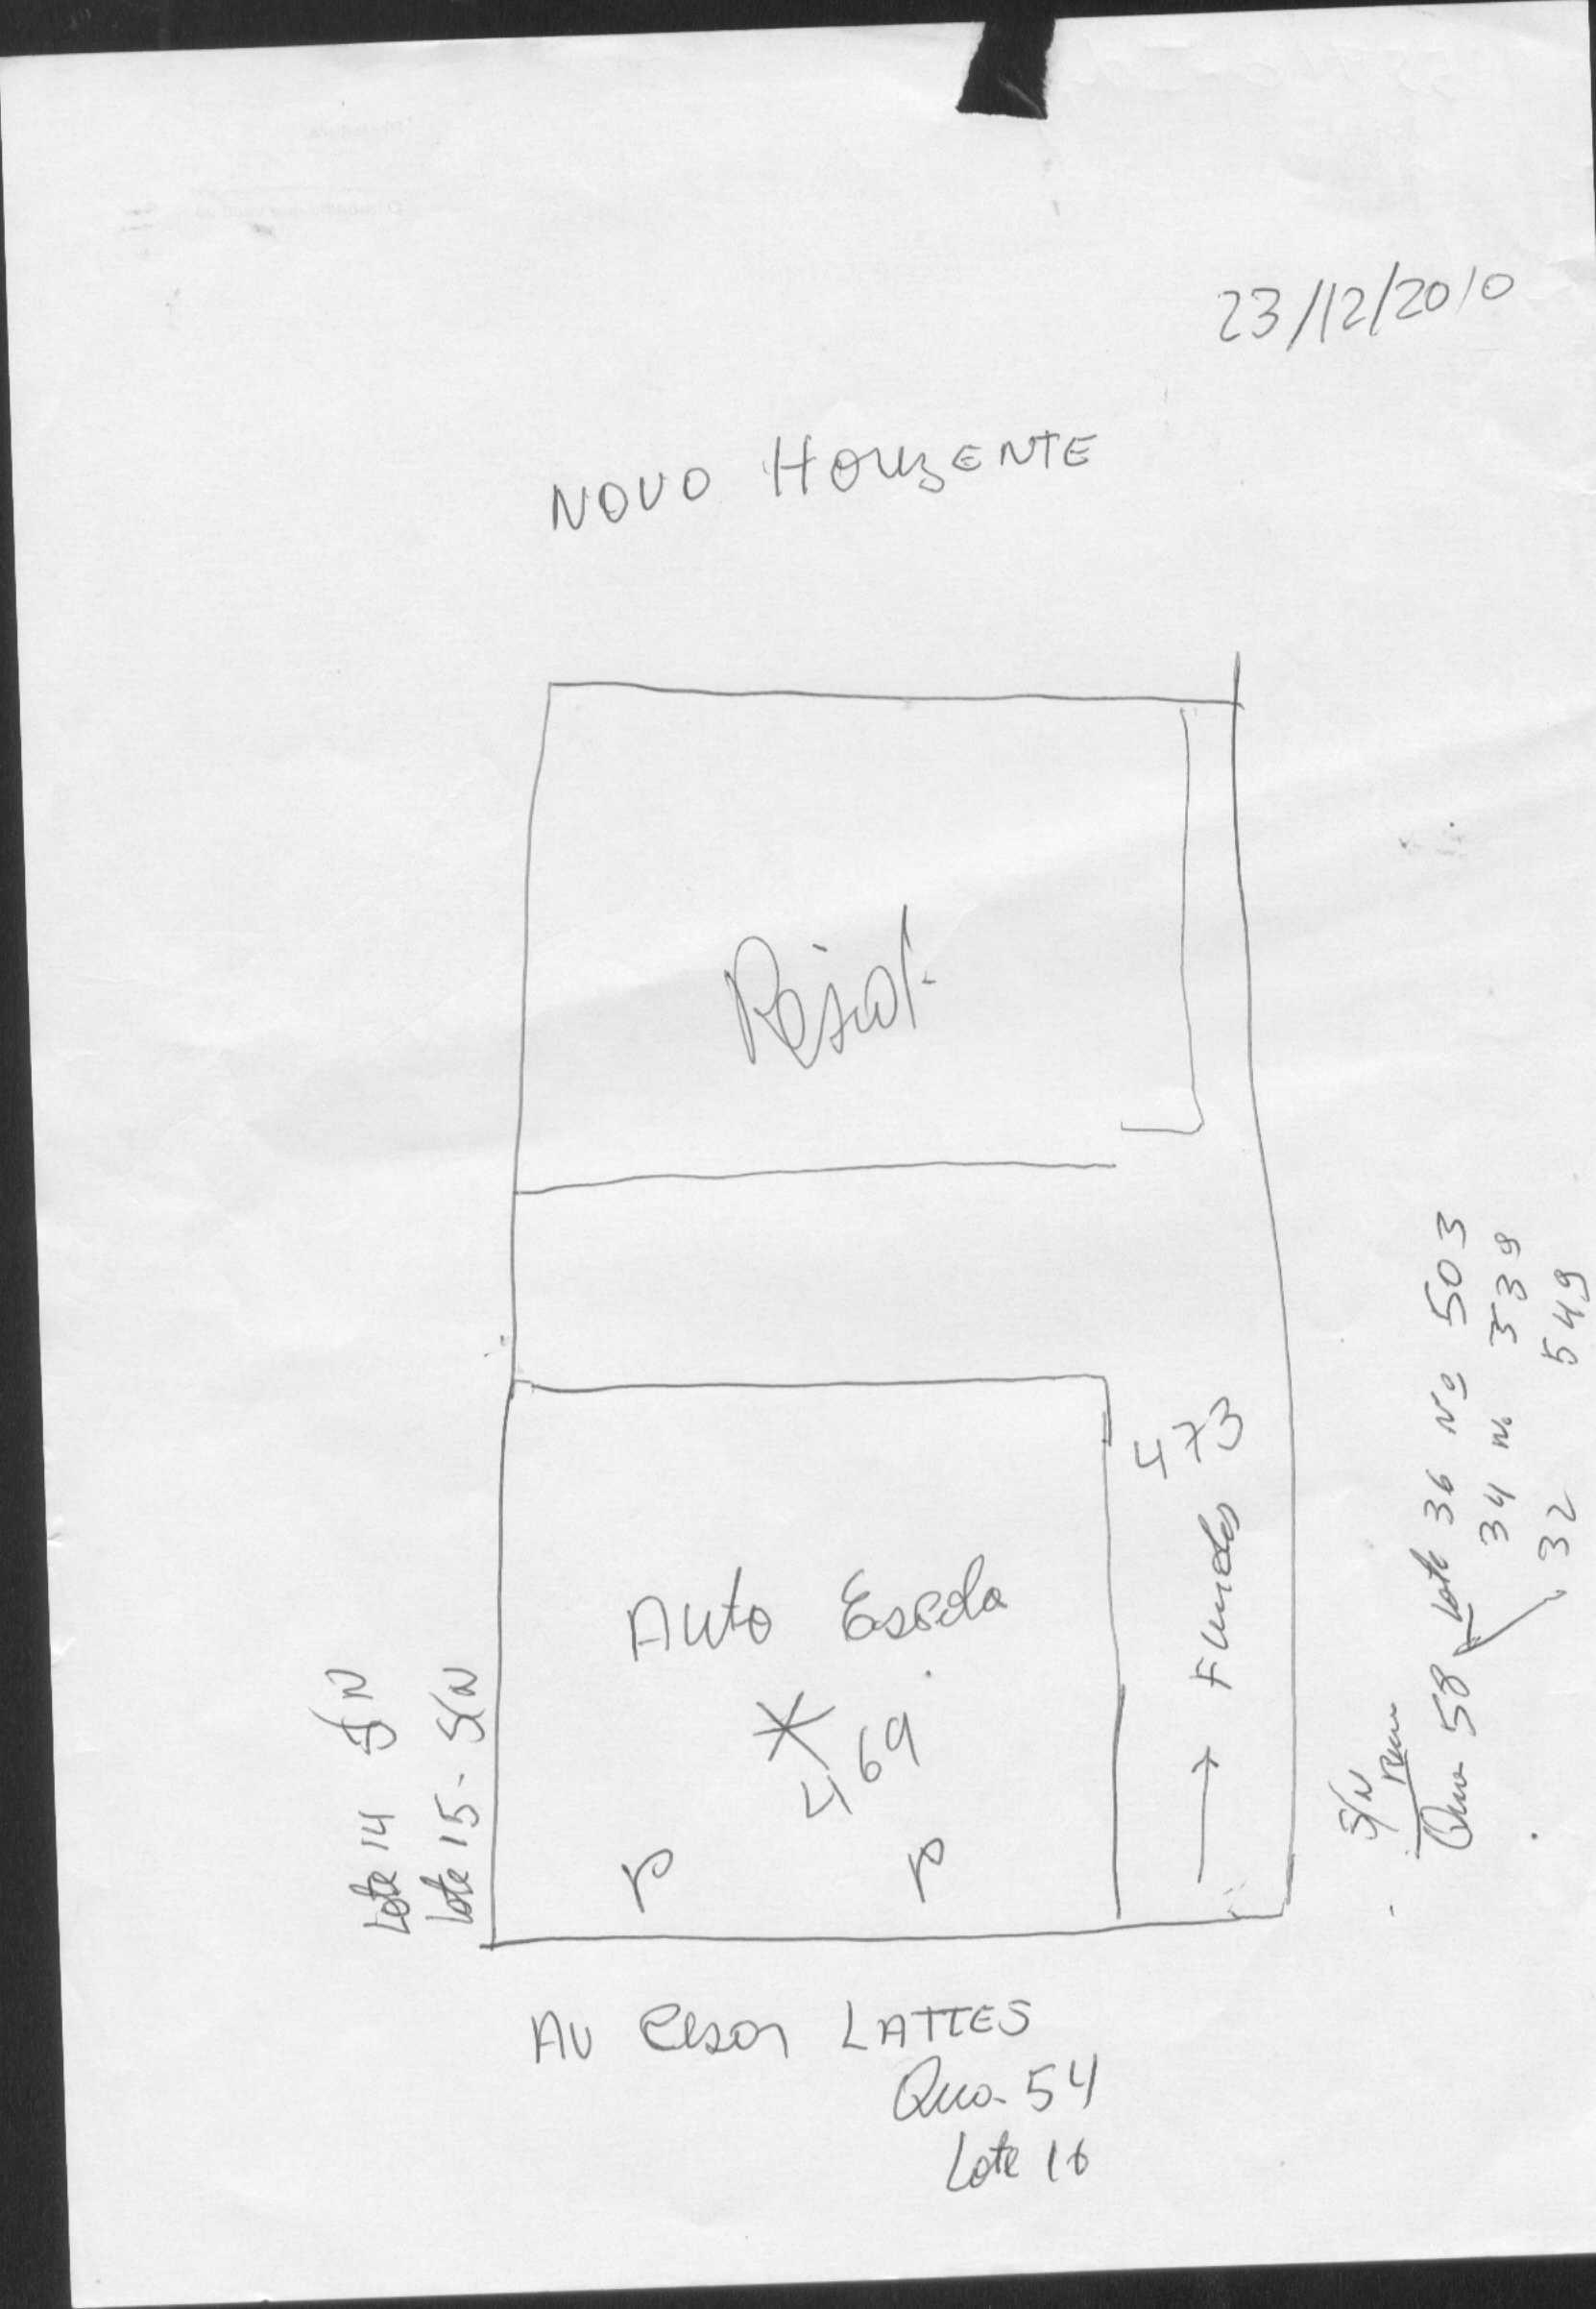 23/12/2010
NOVO HORIZENTE
Resid.
Auto Escola
469
473
→ Fundos
Lote 14 S/N
Lote 15 - S/N
S/N
Qua 58 Lote 36 Nº 503
34 Nº 539
32 549
AV Cesar LATTES
Qua. 54
Lote 16